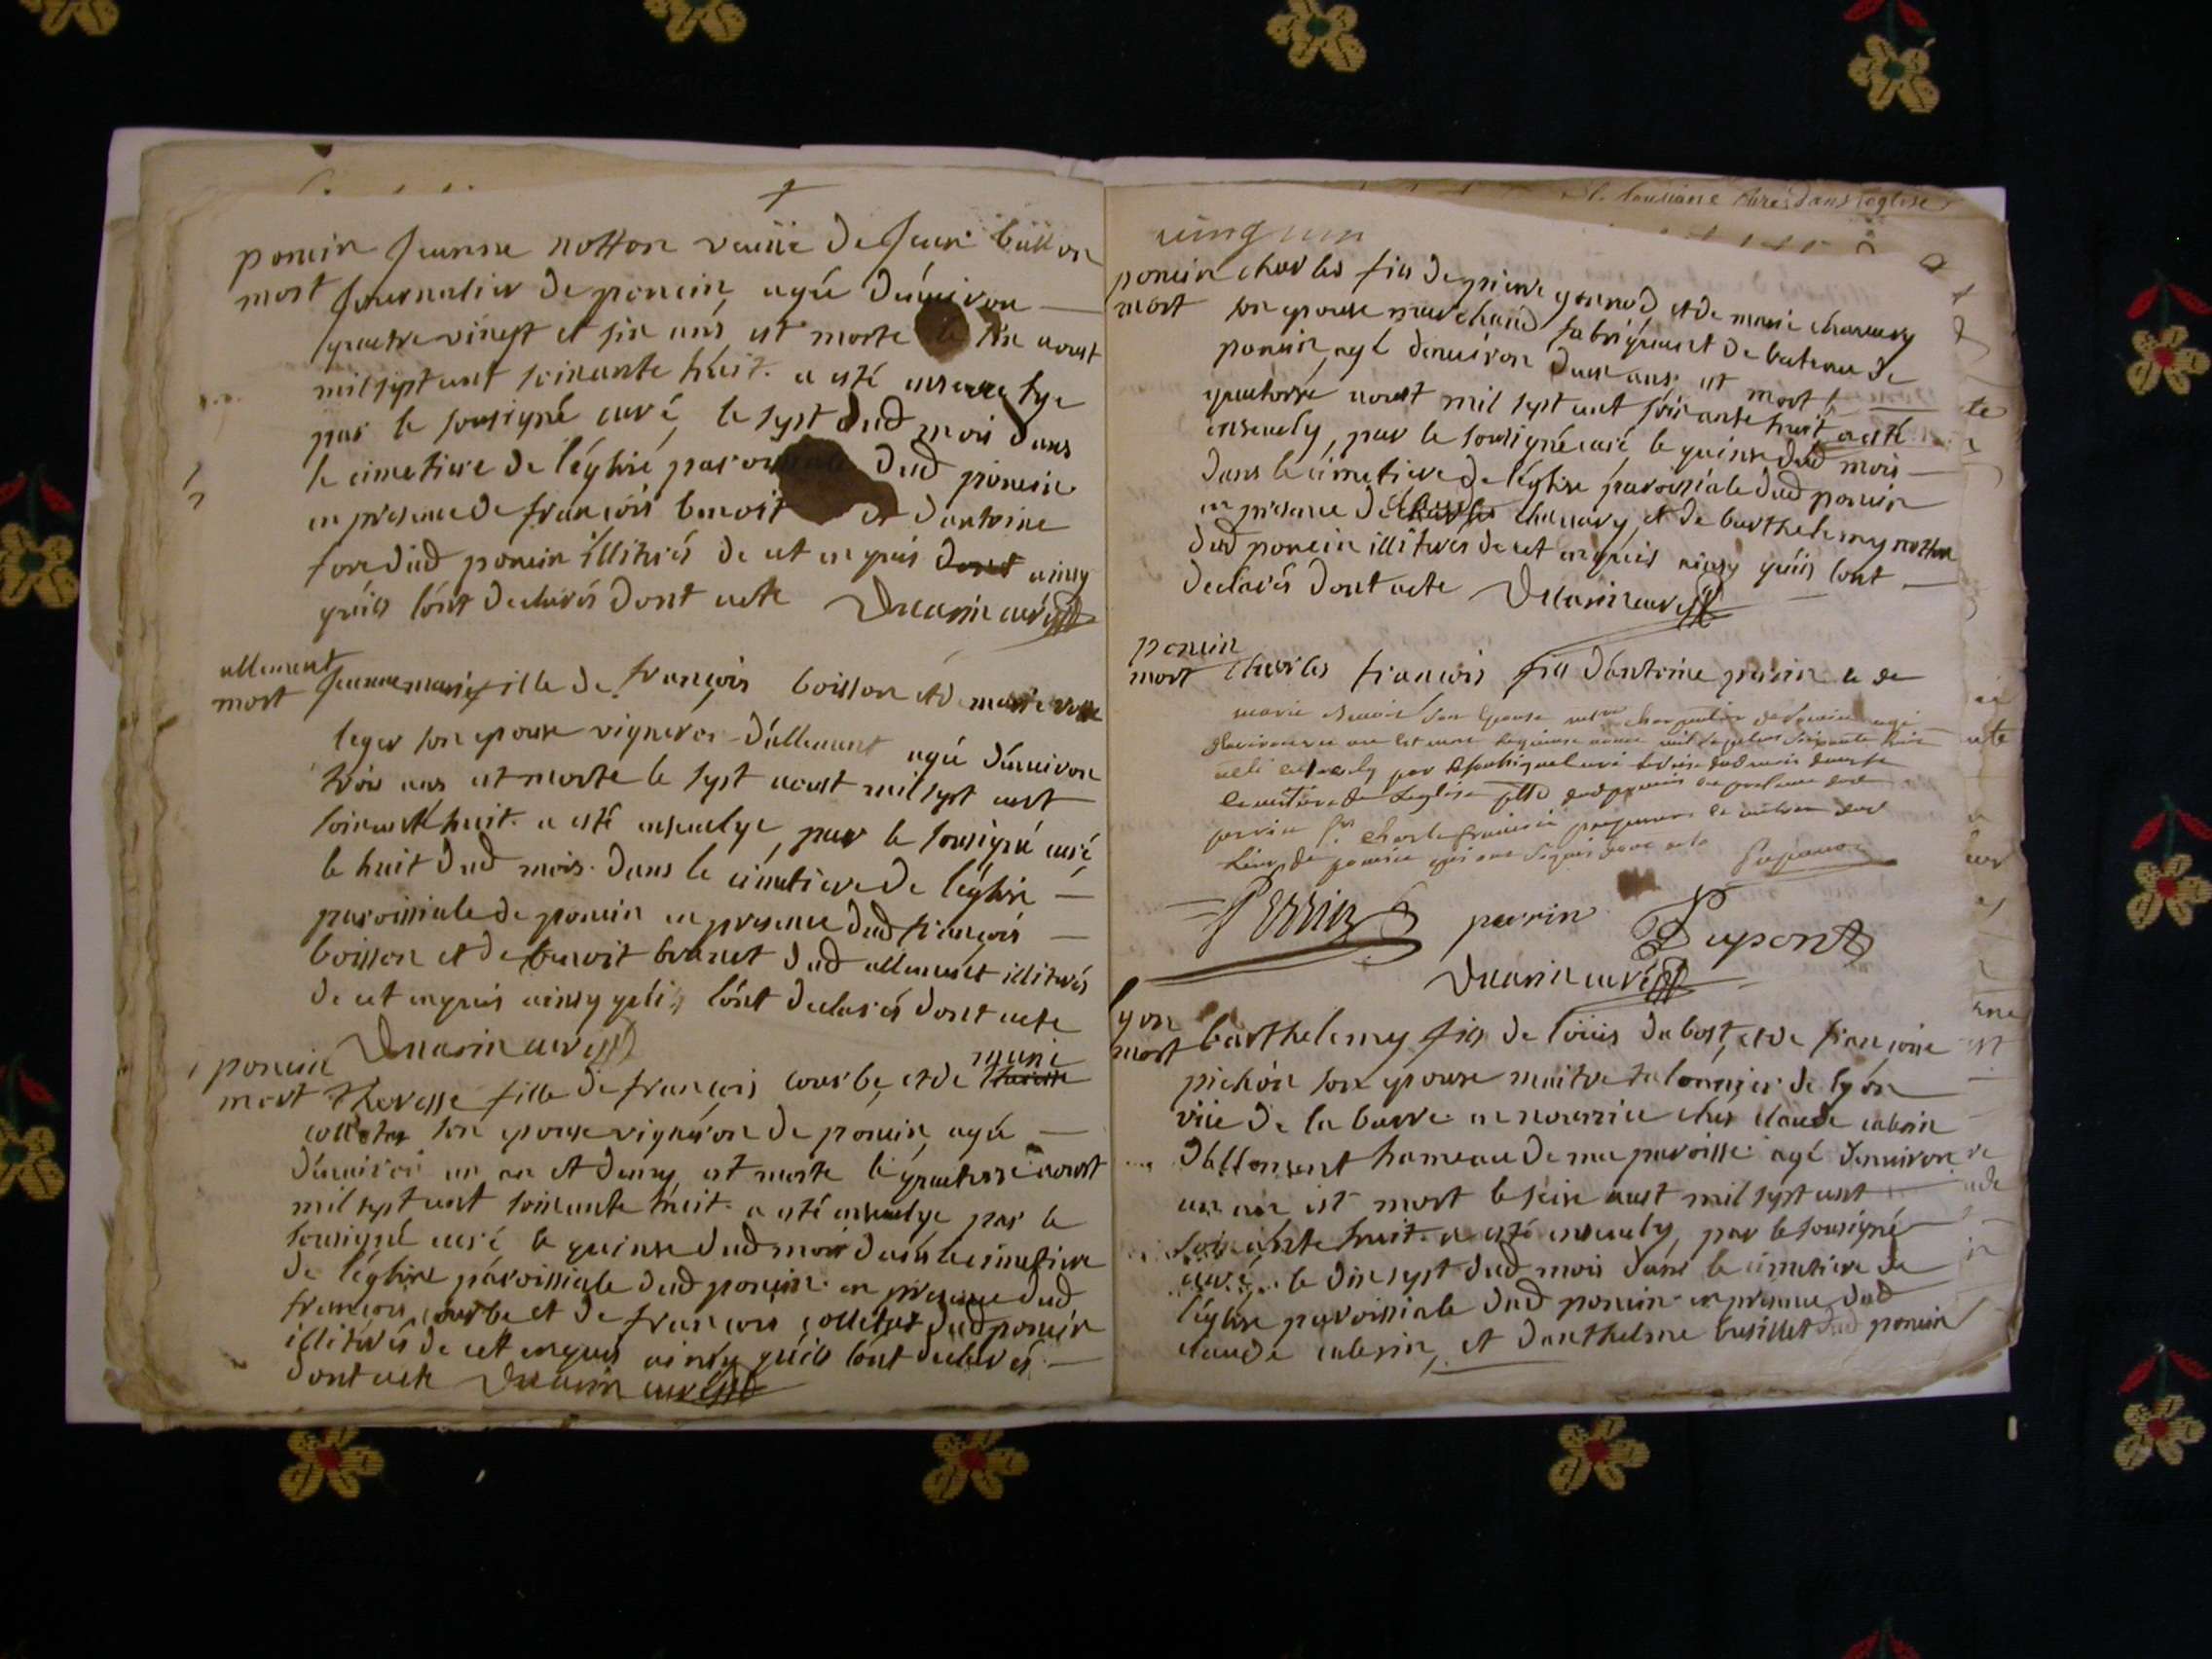 poncin Jeanne notton veuüe de Jean bulion
mort Journalier de poncin, agée d'environ
quatre vingt et six ans est morte le six aoust
mil sept cent soixante huit. a esté ensevelye
par le sousigné curé, le sept dud mois dans
le cimetiere de l'églisé paroissiale dud poncin
en presence de françois benoit et d'antoine
fore dud poncin illiterés de cet enquis dont ainsy
qu'ils l'ont declarés dont acte Ducarin curé
allement
mort Jeanne marie fille de françois boisson et de marie
leger son epouse vigneron d'allement agée d'environ
trois ans est morte le sept aoust mil sept cent
soixante huit. a esté ensevelye, par le sousigné curé
le huit dud mois. dans le cimetiere de l'église
paroissiale de poncin en presence dud françois
boisson et de benoit brunet dud allement illiterés
de cet enquis ainsy qu'ils l'ont declarés dont acte
Ducarin curé
poncin marie
mort Theresse fille de françois courbe, et de
colletas son epouse vigneron de poncin, agée
d'environ un an et demy, est morte le quatorse aoust
mil sept cent soixante huit. a esté ensevelye par le
sousigné curé, le quinse dud mois dans le cimetiere
de l'église paroissiale dud poncin. en presence dud
françois courbe et de françois colletas dud poncin
illiterés de cet enquis ainsy qu'ils l'ont declarés
dont acte Ducarin curé
curé dans l'église
vingt un
poncin charles fils de pierre gonnod, et de marie chavary
mort son epouse marchand fabriquant de bateau de
poncin, agé d'environ deux ans. est mort le
quatorse aoust mil sept cent soixante huit a esté
ensevely, par le sousigné curé le quinse dud mois
dans le cimetiere de l'église paroissiale dud poncin
en presence de charles chavary, et de barthelemy notton
dud poncin illiterés de cet enquis ainsy qu'ils l'ont
declarés dont acte Ducarin curé
poncin
mort charles françois fils d'antoine perrin et de
marie benoit son epouse charpentier de poncin agé
d'environ un an est mort le quinse aoust mil sept cent soixante huit
a esté ensevely par le soussigné curé le seise dud mois dans le
cimetiere de l'eglise dud poncin en presence dud
perrin charle françois
de poncin qui ont signés dont acte Dupont
Perrin perrin Dupont
Ducarin curé
lyon
mort barthelemy fils de loüis dubost, et de françoise
pichon son epouse maitre de lyon
rüe de la barre. en nourrice ches claude cabrin
d'allement hameau de ma paroisse. agé d'environ
un an est mort le seise aust mil sept cent
soixante huit. a esté ensevely, par le sousigné
curé. le dix sept dud mois dans le cimetiere de
l'église paroissiale dud poncin. en presence dud
claude cabrin, et d'anthelme busillet dud poncin